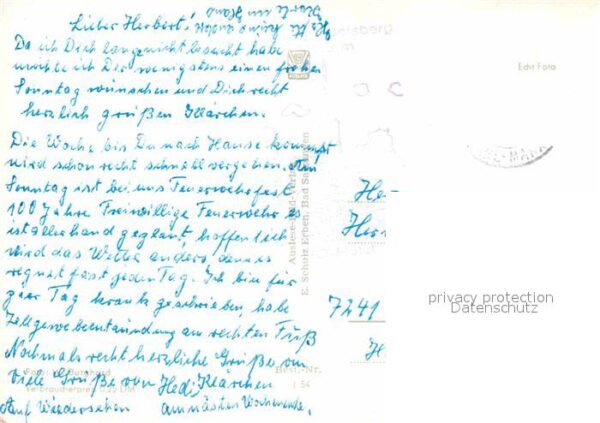 Lieber Herbert!
Da ich Dich lange nicht besucht habe
möchte ich Dir wenigstens einen frohen
Sonntag wünschen und Dich recht
herzlich grüßen Klärchen.
Die Woche bis Du nach Hause kommst
wird schon recht schnell vergehen. Am
Sonntag ist bei uns Feuerwehrfest
100 Jahre Freiwillige Feuerwehr es
ist allerhand geplant, hoffentlich
wird das Wetter anders, denn es
regnet fast jeden Tag. Ich bin für
paar Tag krank geschrieben, habe
Zellgewebeentzündung am rechten Fuß
Nochmals recht herzliche Grüße von
Viele Grüße von Hedi, Klärchen
Auf Wiedersehen am nästen Wochenende.
Echt Foto
E. Schulz Erben, Bad
Her-
Herr
7241
H
Best.-Nr.
1 54
Verbraucherpreis 0,25 DM
privacy protection
Datenschutz